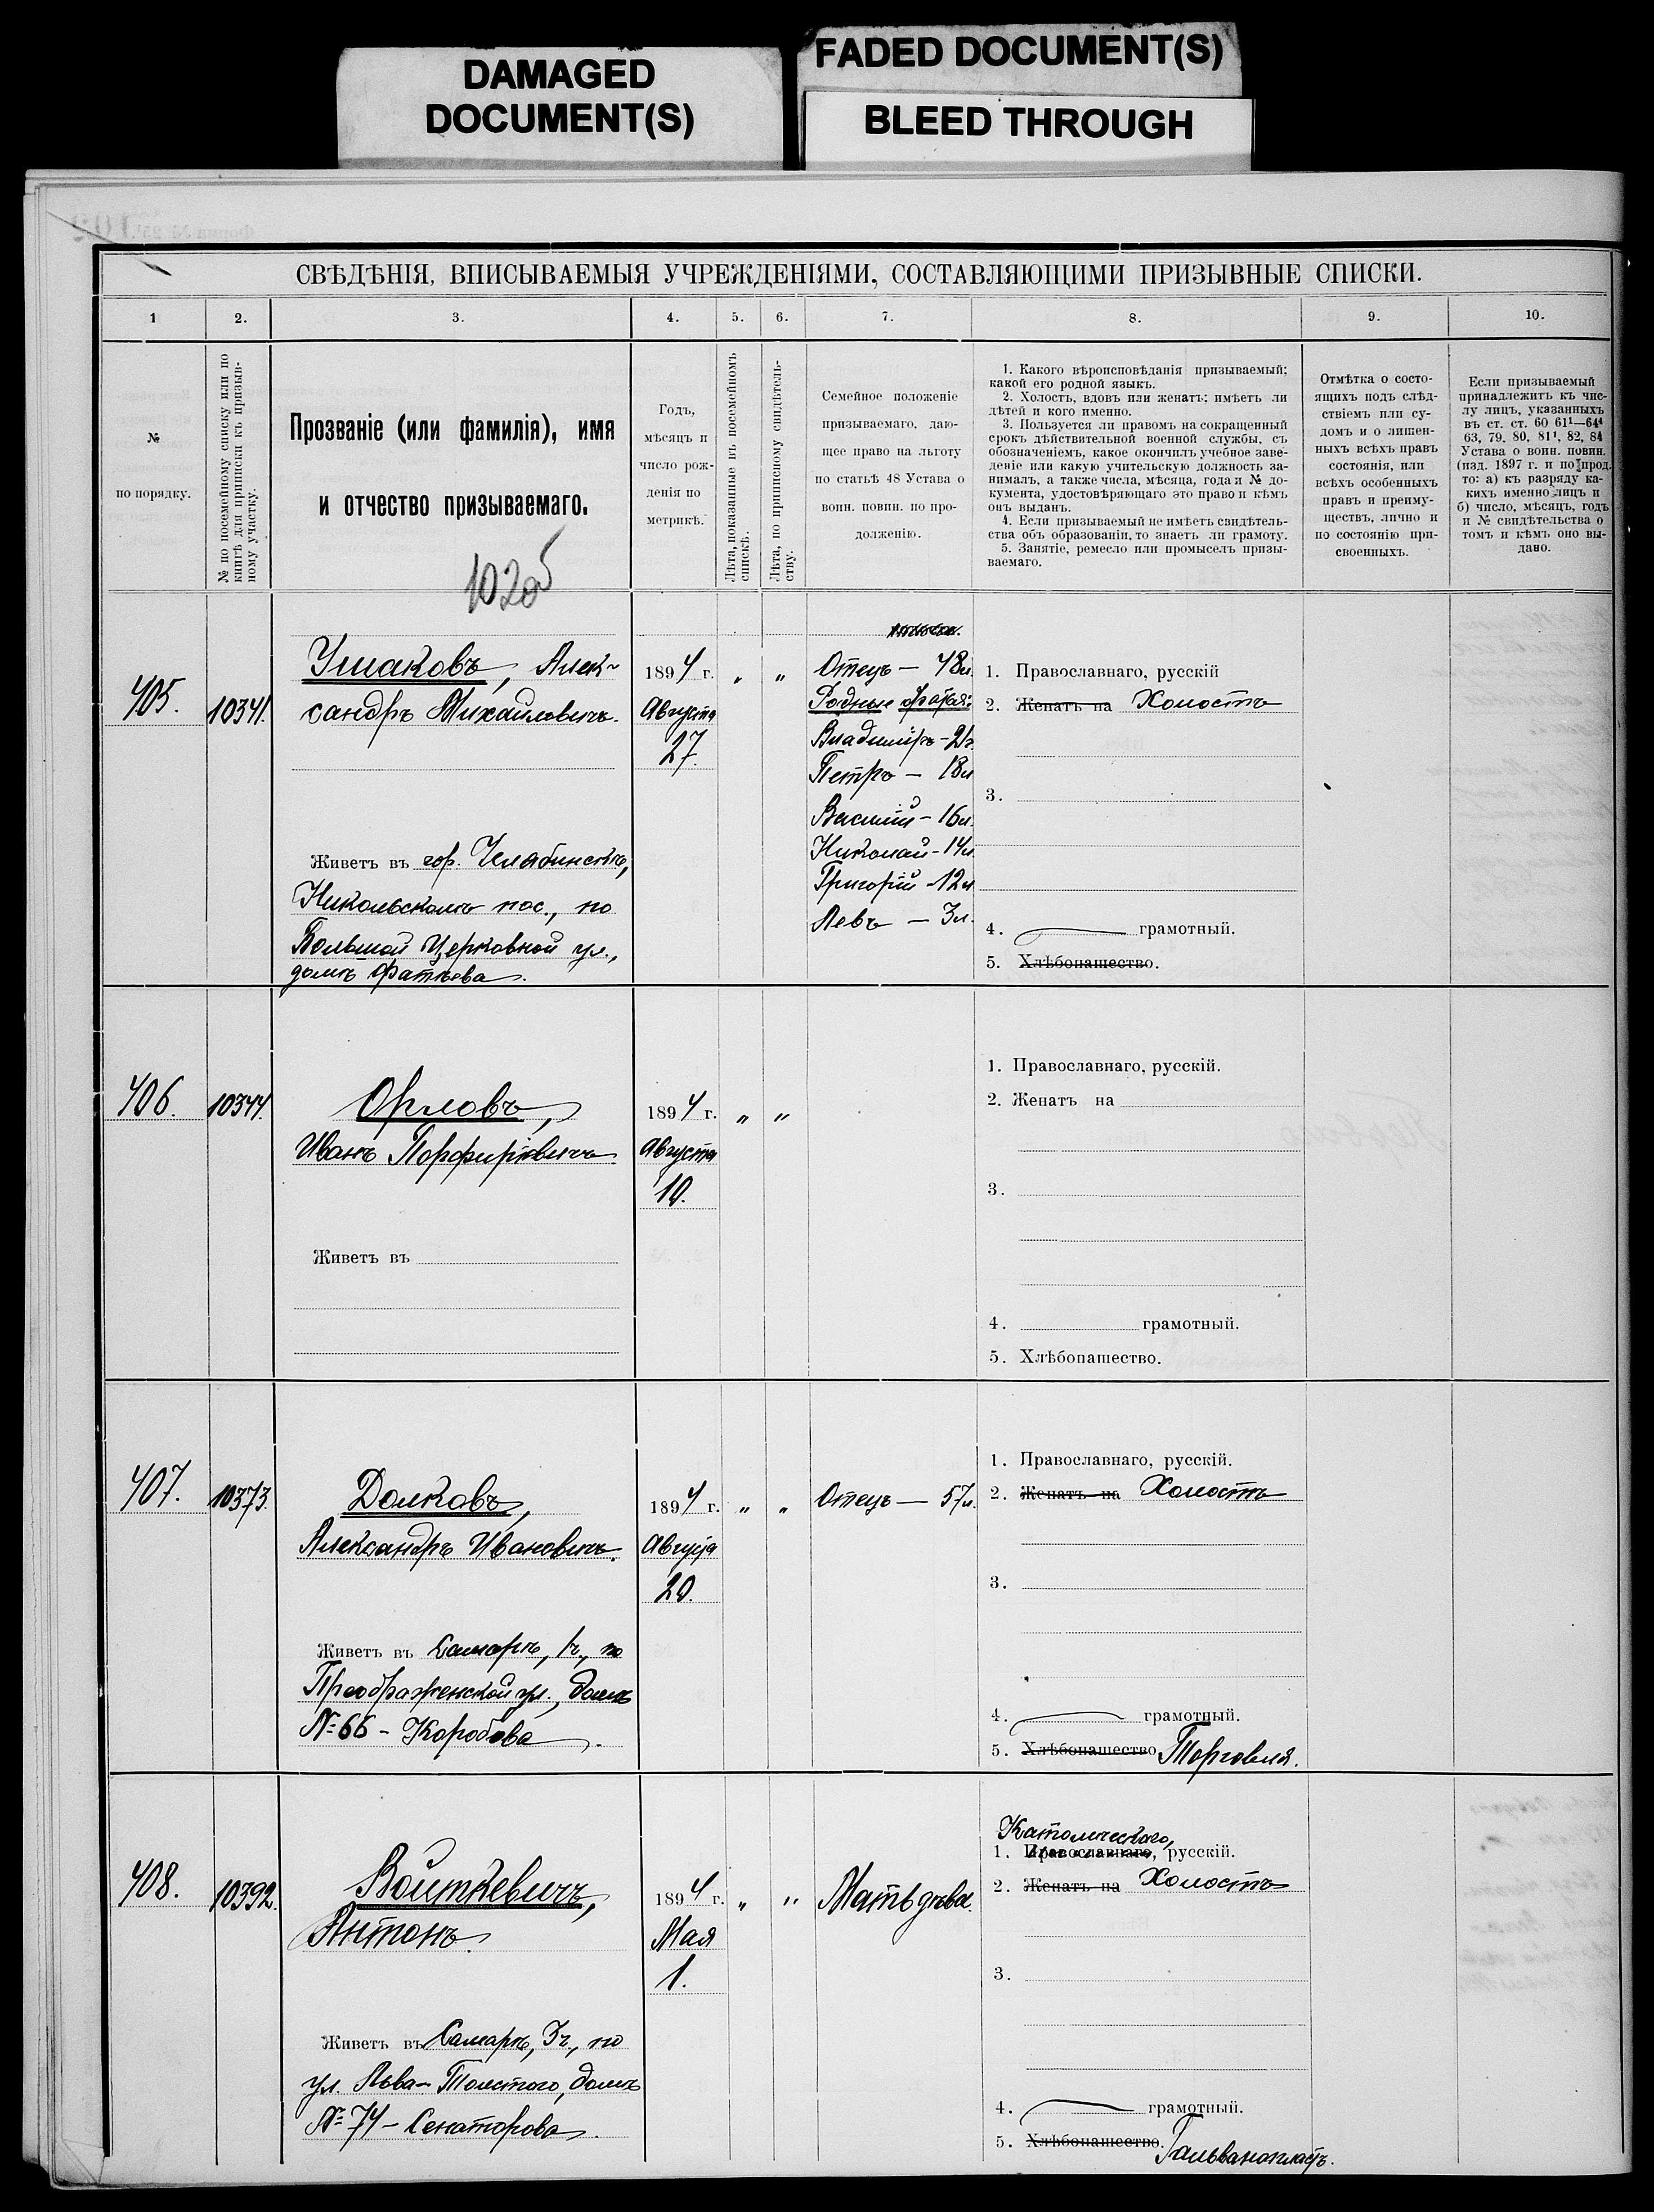 DAMAGED
DOCUMENT(S)
FADED DOCUMENT(S)
BLEED THROUGH
СВѢДѢНІЯ, ВПИСЫВАЕМЫЯ УЧРЕЖДЕНІЯМИ, СОСТАВЛЯЮЩИМИ ПРИЗЫВНЫЕ СПИСКИ.
1 2. 3. 4. 5. 6. 7. 8. 9. 10.
№
по порядку.
№ по посемейному списку или по
книгѣ для приписки къ призыв-
ному участку.
Прозваніе (или фамилія), имя
и отчество призываемаго.
102об
Годъ,
мѣсяцъ и
число рож-
денія по
метрикѣ.
Лѣта, показанные въ посемейномъ
спискѣ.
Лѣта, по приписному свидѣтель-
ству.
Семейное положеніе
призываемаго, даю-
щее право на льготу
по статьѣ 48 Устава о
воин. повин. по про-
долженію.
1. Какого вѣроисповѣданія призываемый;
какой его родной языкъ.
2. Холостъ, вдовъ или женатъ; имѣетъ ли
дѣтей и кого именно.
3. Пользуется ли правомъ на сокращенный
срокъ дѣйствительной военной службы, съ
обозначеніемъ, какое окончилъ учебное заве-
деніе или какую учительскую должность за-
нималъ, а также числа, мѣсяца, года и № до-
кумента, удостовѣряющаго это право и кѣмъ
онъ выданъ.
4. Если призываемый не имѣетъ свидѣтель-
ства объ образованіи, то знаетъ ли грамоту.
5. Занятіе, ремесло или промыселъ призы-
ваемаго.
Отмѣтка о состо-
ящихъ подъ слѣд-
ствіемъ или су-
домъ и о лишен-
ныхъ всѣхъ правъ
состоянія, или
всѣхъ особенныхъ
правъ и преиму-
ществъ, лично и
по состоянію при-
своенныхъ.
Если призываемый
принадлежитъ къ чис-
лу лицъ, указанныхъ
въ ст. ст. 60 61¹—64⁴
63, 79, 80, 81¹, 82, 84
Устава о воин. повин.
(изд. 1897 г. и по прод.
то: а) къ разряду ка-
кихъ именно лицъ и
б) число, мѣсяцъ, годъ
и № свидѣтельства о
томъ и кѣмъ оно вы-
дано.
405. 10341.
Ушаковъ, Алек-
сандръ Михайловичъ.
Живетъ въ гор. Челябинскѣ,
Никольскомъ пос., по
Большой Церковной ул.,
домъ Фатѣева.
1894 г. " "
Августа
27.
Отецъ — 48 л.
Родные братья:
Владиміръ - 21 г.
Петръ — 18 л
Василій - 16 л.
Николай - 14 л.
Григорій - 12 л.
Левъ — 3 л.
1. Православнаго, русскій
2. Женатъ на Холостъ
3.
4. грамотный.
5. Хлѣбопашество.
406. 10344.
Орловъ,
Иванъ Порфирьевичъ.
Живетъ въ
1894 г. " "
Августа
10.
1. Православнаго, русскій.
2. Женатъ на
3.
4. грамотный.
5. Хлѣбопашество.
407. 10373.
Долковъ,
Александръ Ивановичъ.
Живетъ въ Самарѣ, 1 ч., по
Преображенской ул., домъ
№ 66 - Коробова.
1894 г. " "
Августа
20.
Отецъ — 57 л.
1. Православнаго, русскій.
2. Женатъ на Холостъ
3.
4. грамотный.
5. Хлѣбопашество Торговля.
408. 10392.
Войткевичъ,
Антонъ.
Живетъ въ Самарѣ, 3 ч., по
ул. Льва-Толстого, домъ
№ 74 - Сенаторова.
1894 г. " "
Мая
1.
Мать дѣва.
Католическаго,
1. Православнаго, русскій.
2. Женатъ на Холостъ
3.
4. грамотный.
5. Хлѣбопашество. Гальванопластъ.